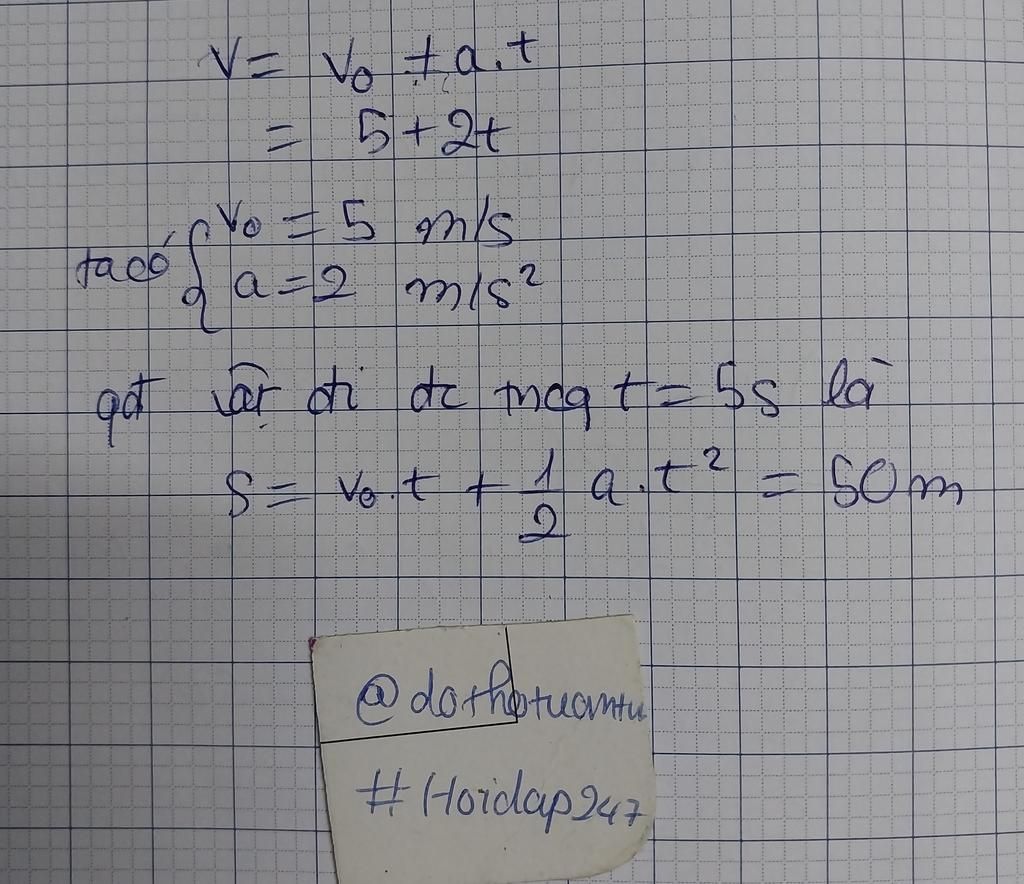 v = v₀ + a.t
= 5 + 2t
ta có { v₀ = 5 m/s
a = 2 m/s²
qđ vật đi đc t = 5s là
S = v₀.t + 1/2 a.t² = 50m
@dothotuantu
#Hoidap247